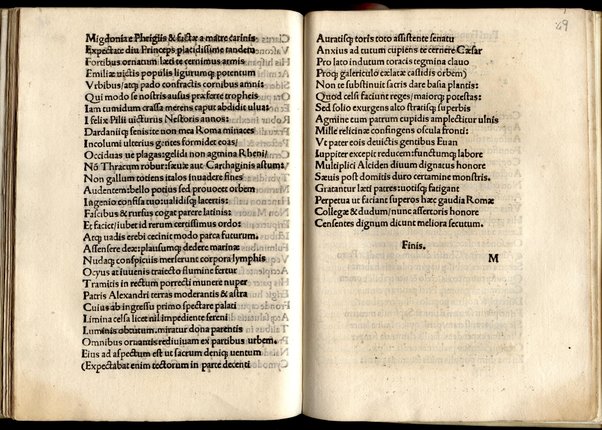 Migdoniæ Phrigiis & factæ a matre carinis
Expectate diu Princeps placidissime tandem
Fortibus ornatum læti te cernimus armis
Emiliæ uictis populis ligurumq; potentum
Vrbibus/atq; pado confractis cornibus amni:
Qui modo se nostris ausus præferre tropheis
Iam tumidum crassa merens caput abdidit ulua:
I felix Pilii uicturus Nestoris annos:
Dardanii q; senis:te non mea Roma minaces
Incolumi ulterius gentes formidet eoas/
Occiduas ue plagas: gelidi non agmina Rheni/
Nō Thracum robur: sæuæ aut Carthaginis astum:
Non gallum totiens italos inuadere fines
Audentem: bello potius sed prouocet orbem
Ingenio confisa tuo:ualidisq; lacertis:
Fascibus & rursus cogat parere latinis:
Et faciet/iubet id rerum certissimus ordo:
Atq; uadis erebi cecinit modo parca futurum.
Assensere deæ:plausumq; dedere marinæ
Nudaq; conspicui merserunt corpora lymphis
Ocyus at iuuenis traiecto flumine fertur
Tramitis in rectum porrecti munere nuper
Patris Alexandri terras moderantis & astra
Cuius ab ingressu primo spectare palati
Limina celsa licet nil impediente sereni
Luminis obtutum.miratur dona parentis
Omnibus ornantis rediuiuam ex partibus urbem.
Eius ad aspectum est ut sacrum deniq; uentum
(Expectabat enim tectorum in parte decenti
69
Auratisq; toris toto assistente senatu
Anxius ad tutum cupiens te cernere Cæsar
Pro lato indutum toracis tegmina clauo
Proq; galericulo exlatæ cassidis orbem)
Non te substinuit sacris dare basia plantis:
Quod celsi faciunt reges/maiorq; potestas:
Sed solio exurgens alto straisq; superbis
Agmine cum patrum cupidis amplectitur ulnis
Mille relicinæ confingens oscula fronti:
Vt pater eois deuictis gentibus Euan
Iuppiter excepit reducem:functumq; labore
Multiplici Alciden diuum dignatus honore
Sæuis post domitis duro certamine monstris.
Gratantur læti patres:uotisq; fatigant
Perpetua ut faciant superos hæc gaudia Romæ
Collegæ & dudum/nunc assertoris honore
Censentes dignum dicunt meliora secutum.
Finis.
M